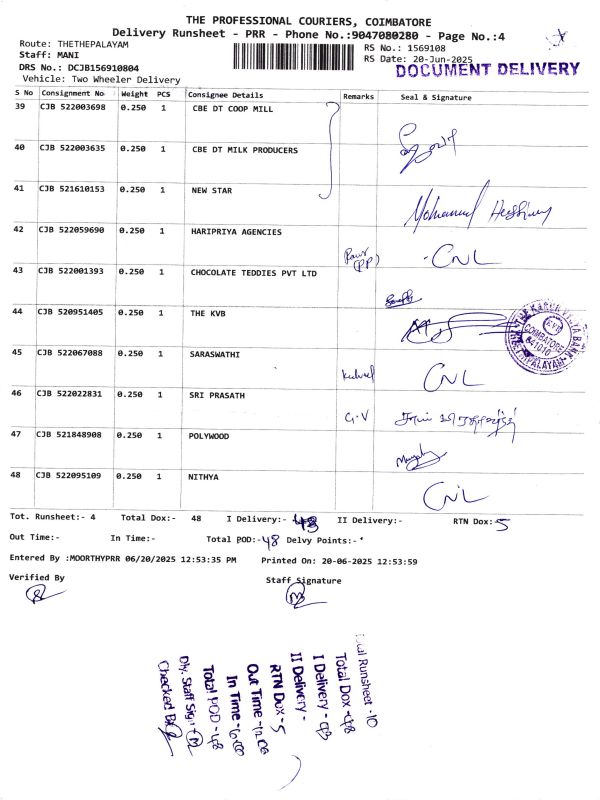 THE PROFESSIONAL COURIERS, COIMBATORE
Delivery Runsheet - PRR - Phone No.:9047080280 - Page No.:4
Route: THETHEPALAYAM
RS No.: 1569108
Staff: MANI
RS Date: 20-Jun-2025
DRS No.: DCJB156910804
DOCUMENT DELIVERY
Vehicle: Two Wheeler Delivery
S No Consignment No Weight PCS Consignee Details Remarks Seal & Signature
39 CJB 522003698 0.250 1 CBE DT COOP MILL
40 CJB 522003635 0.250 1 CBE DT MILK PRODUCERS
41 CJB 521610153 0.250 1 NEW STAR
Mohamed
42 CJB 522059690 0.250 1 HARIPRIYA AGENCIES
(PP) CNL
43 CJB 522001393 0.250 1 CHOCOLATE TEDDIES PVT LTD
44 CJB 520951405 0.250 1 THE KVB
THE KARUR VYSYA BANK
KVB
COIMBATORE
641010
45 CJB 522067088 0.250 1 SARASWATHI
CNL
46 CJB 522022831 0.250 1 SRI PRASATH
G.V
47 CJB 521848908 0.250 1 POLYWOOD
48 CJB 522095109 0.250 1 NITHYA
CNL
Tot. Runsheet:- 4 Total Dox:- 48 I Delivery:- 43 II Delivery:- RTN Dox:- 5
Out Time:- In Time:- Total POD:- 48 Delvy Points:- *
Entered By :MOORTHYPRR 06/20/2025 12:53:35 PM Printed On: 20-06-2025 12:53:59
Verified By Staff Signature
Runsheet - 10
Total Dox - 48
I Delivery - 93
II Delivery -
RTN Dox - 5
Out Time -
In Time -
Total POD - 48
Dly. Staff Sign -
Checked By